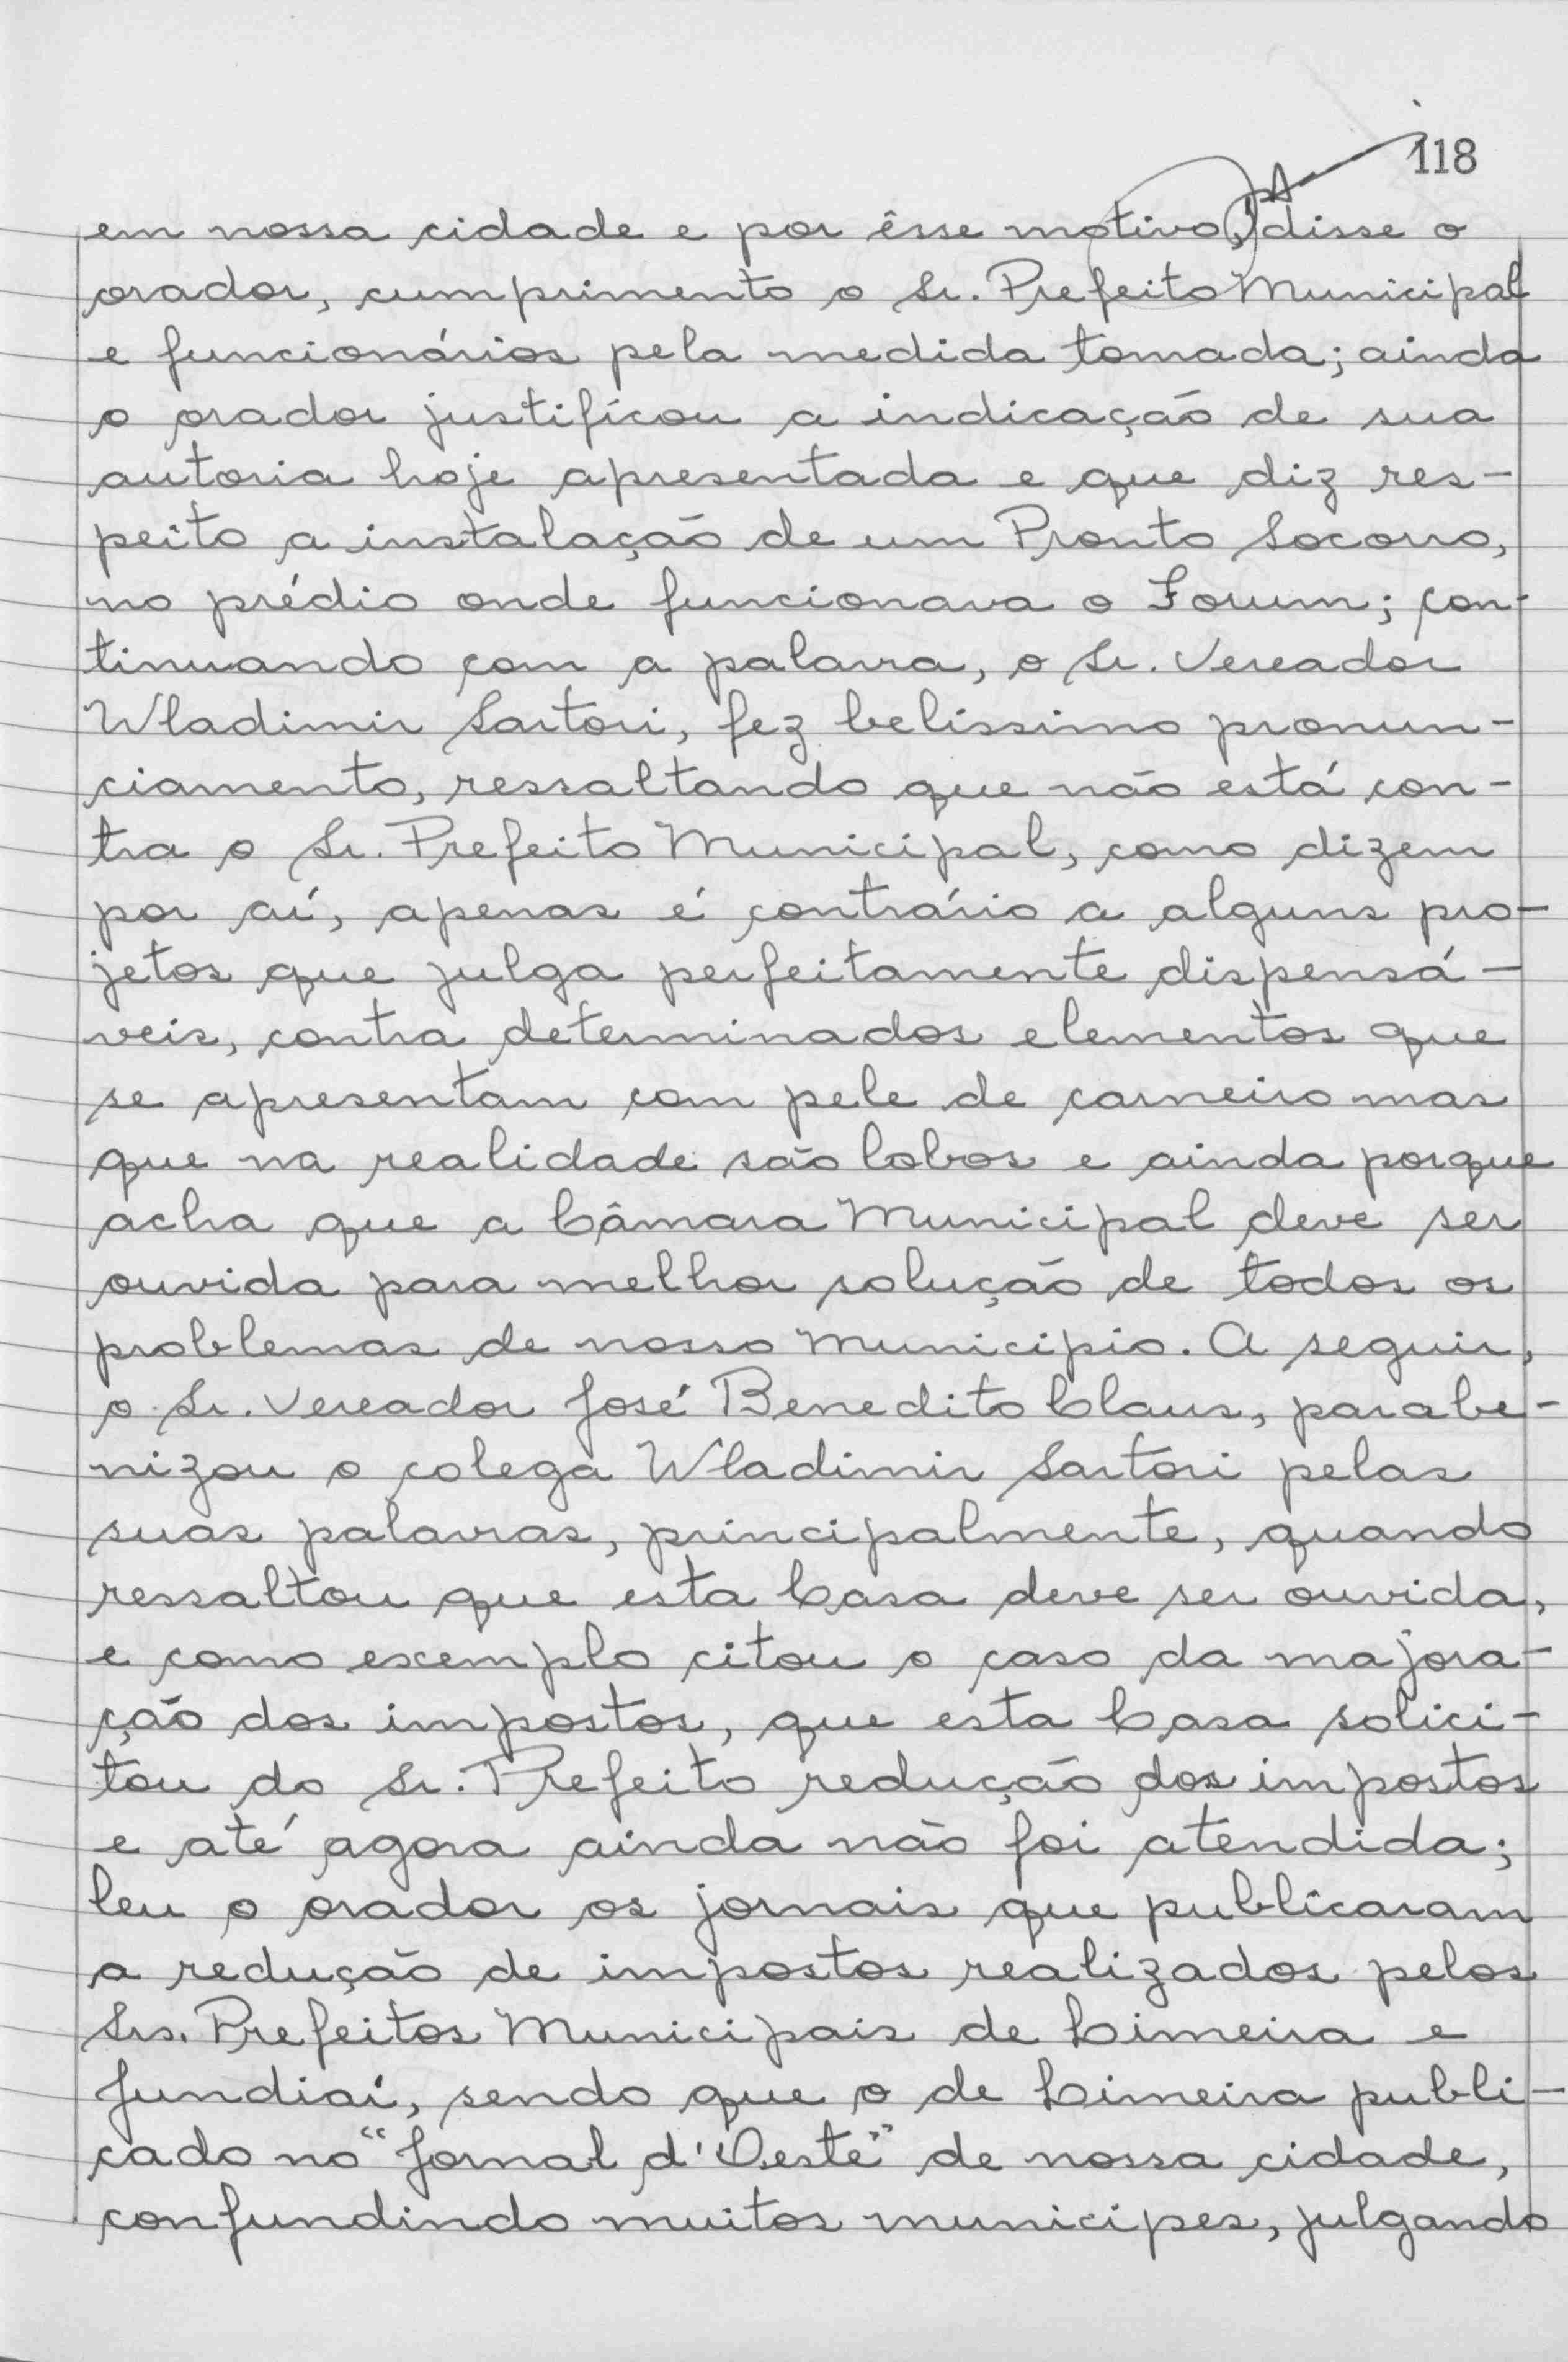 118
em nossa cidade e por êsse motivo, disse o
orador, cumprimento o Sr. Prefeito Municipal
e funcionários pela medida tomada; ainda
o orador justificou a indicação de sua
autoria hoje apresentada e que diz res-
peito a instalação de um Pronto Socorro,
no prédio onde funcionava o Forum; con-
tinuando com a palavra, o Sr. Vereador
Wladimir Sartori, fez belissimo pronun-
ciamento, ressaltando que não está con-
tra o Sr. Prefeito Municipal, como dizem
por aí, apenas é contrário a alguns pro-
jetos que julga perfeitamente dispensá-
veis, contra determinados elementos que
se apresentam com pele de carneiro mas
que na realidade são lobos e ainda porque
acha que a Câmara Municipal deve ser
ouvida para melhor solução de todos os
problemas de nosso Municipio. A seguir,
o Sr. Vereador José Benedito Claus, parabe-
nizou o colega Wladimir Sartori pelas
suas palavras, principalmente, quando
ressaltou que esta Casa deve ser ouvida,
e como exemplo citou o caso da majora-
ção dos impostos, que esta Casa solici-
tou do Sr. Prefeito redução dos impostos
e até agora ainda não foi atendida;
leu o orador os jornais que publicaram
a redução de impostos realizados pelos
Srs. Prefeitos Municipais de Limeira e
Jundiaí, sendo que o de Limeira publi-
cado no "Jornal d'Oeste" de nossa cidade,
confundindo muitos municipes, julgando